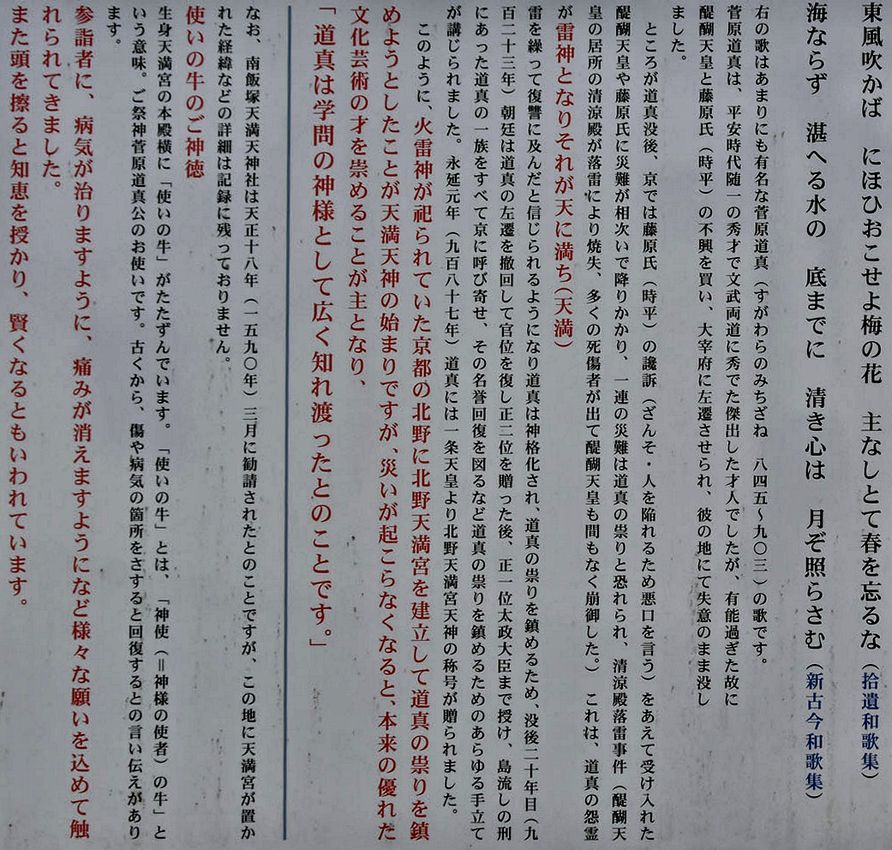 東風吹かば　にほひおこせよ梅の花　主なしとて春を忘るな（拾遺和歌集）
海ならず　湛へる水の　底までに　清き心は　月ぞ照らさむ（新古今和歌集）
右の歌はあまりにも有名な菅原道真（すがわらのみちざね　八四五～九〇三）の歌です。
菅原道真は、平安時代随一の秀才で文武両道に秀でた傑出した才人でしたが、有能過ぎた故に
醍醐天皇と藤原氏（時平）の不興を買い、大宰府に左遷させられ、彼の地にて失意のまま没し
ました。
ところが道真没後、京では藤原氏（時平）の讒訴（ざんそ・人を陥れるため悪口を言う）をあえて受け入れた
醍醐天皇や藤原氏に災難が相次いで降りかかり、一連の災難は道真の祟りと恐れられ、清涼殿落雷事件（醍醐天
皇の居所の清涼殿が落雷により焼失、多くの死傷者が出て醍醐天皇も間もなく崩御した。）　これは、道真の怨霊
が雷神となりそれが天に満ち（天満）
雷を繰って復讐に及んだと信じられるようになり道真は神格化され、道真の祟りを鎮めるため、没後二十年目（九
百二十三年）朝廷は道真の左遷を撤回して官位を復し正二位を贈った後、正一位太政大臣まで授け、島流しの刑
にあった道真の一族をすべて京に呼び寄せ、その名誉回復を図るなど道真の祟りを鎮めるためのあらゆる手立て
が講じられました。永延元年（九百八十七年）道真には一条天皇より北野天満宮天神の称号が贈られました。
このように、火雷神が祀られていた京都の北野に北野天満宮を建立して道真の祟りを鎮
めようとしたことが天満天神の始まりですが、災いが起こらなくなると、本来の優れた
文化芸術の才を崇めることが主となり、
「道真は学問の神様として広く知れ渡ったとのことです。」
なお、南飯塚天満天神社は天正十八年（一五九〇年）三月に勧請されたとのことですが、この地に天満宮が置か
れた経緯などの詳細は記録に残っておりません。
使いの牛のご神徳
生身天満宮の本殿横に「使いの牛」がたたずんでいます。　「使いの牛」とは、「神使（＝神様の使者）の牛」と
いう意味。ご祭神菅原道真公のお使いです。古くから、傷や病気の箇所をさすると回復するとの言い伝えがあり
ます。
参詣者に、病気が治りますように、痛みが消えますようになど様々な願いを込めて触
れられてきました。
また頭を擦ると知恵を授かり、賢くなるともいわれています。